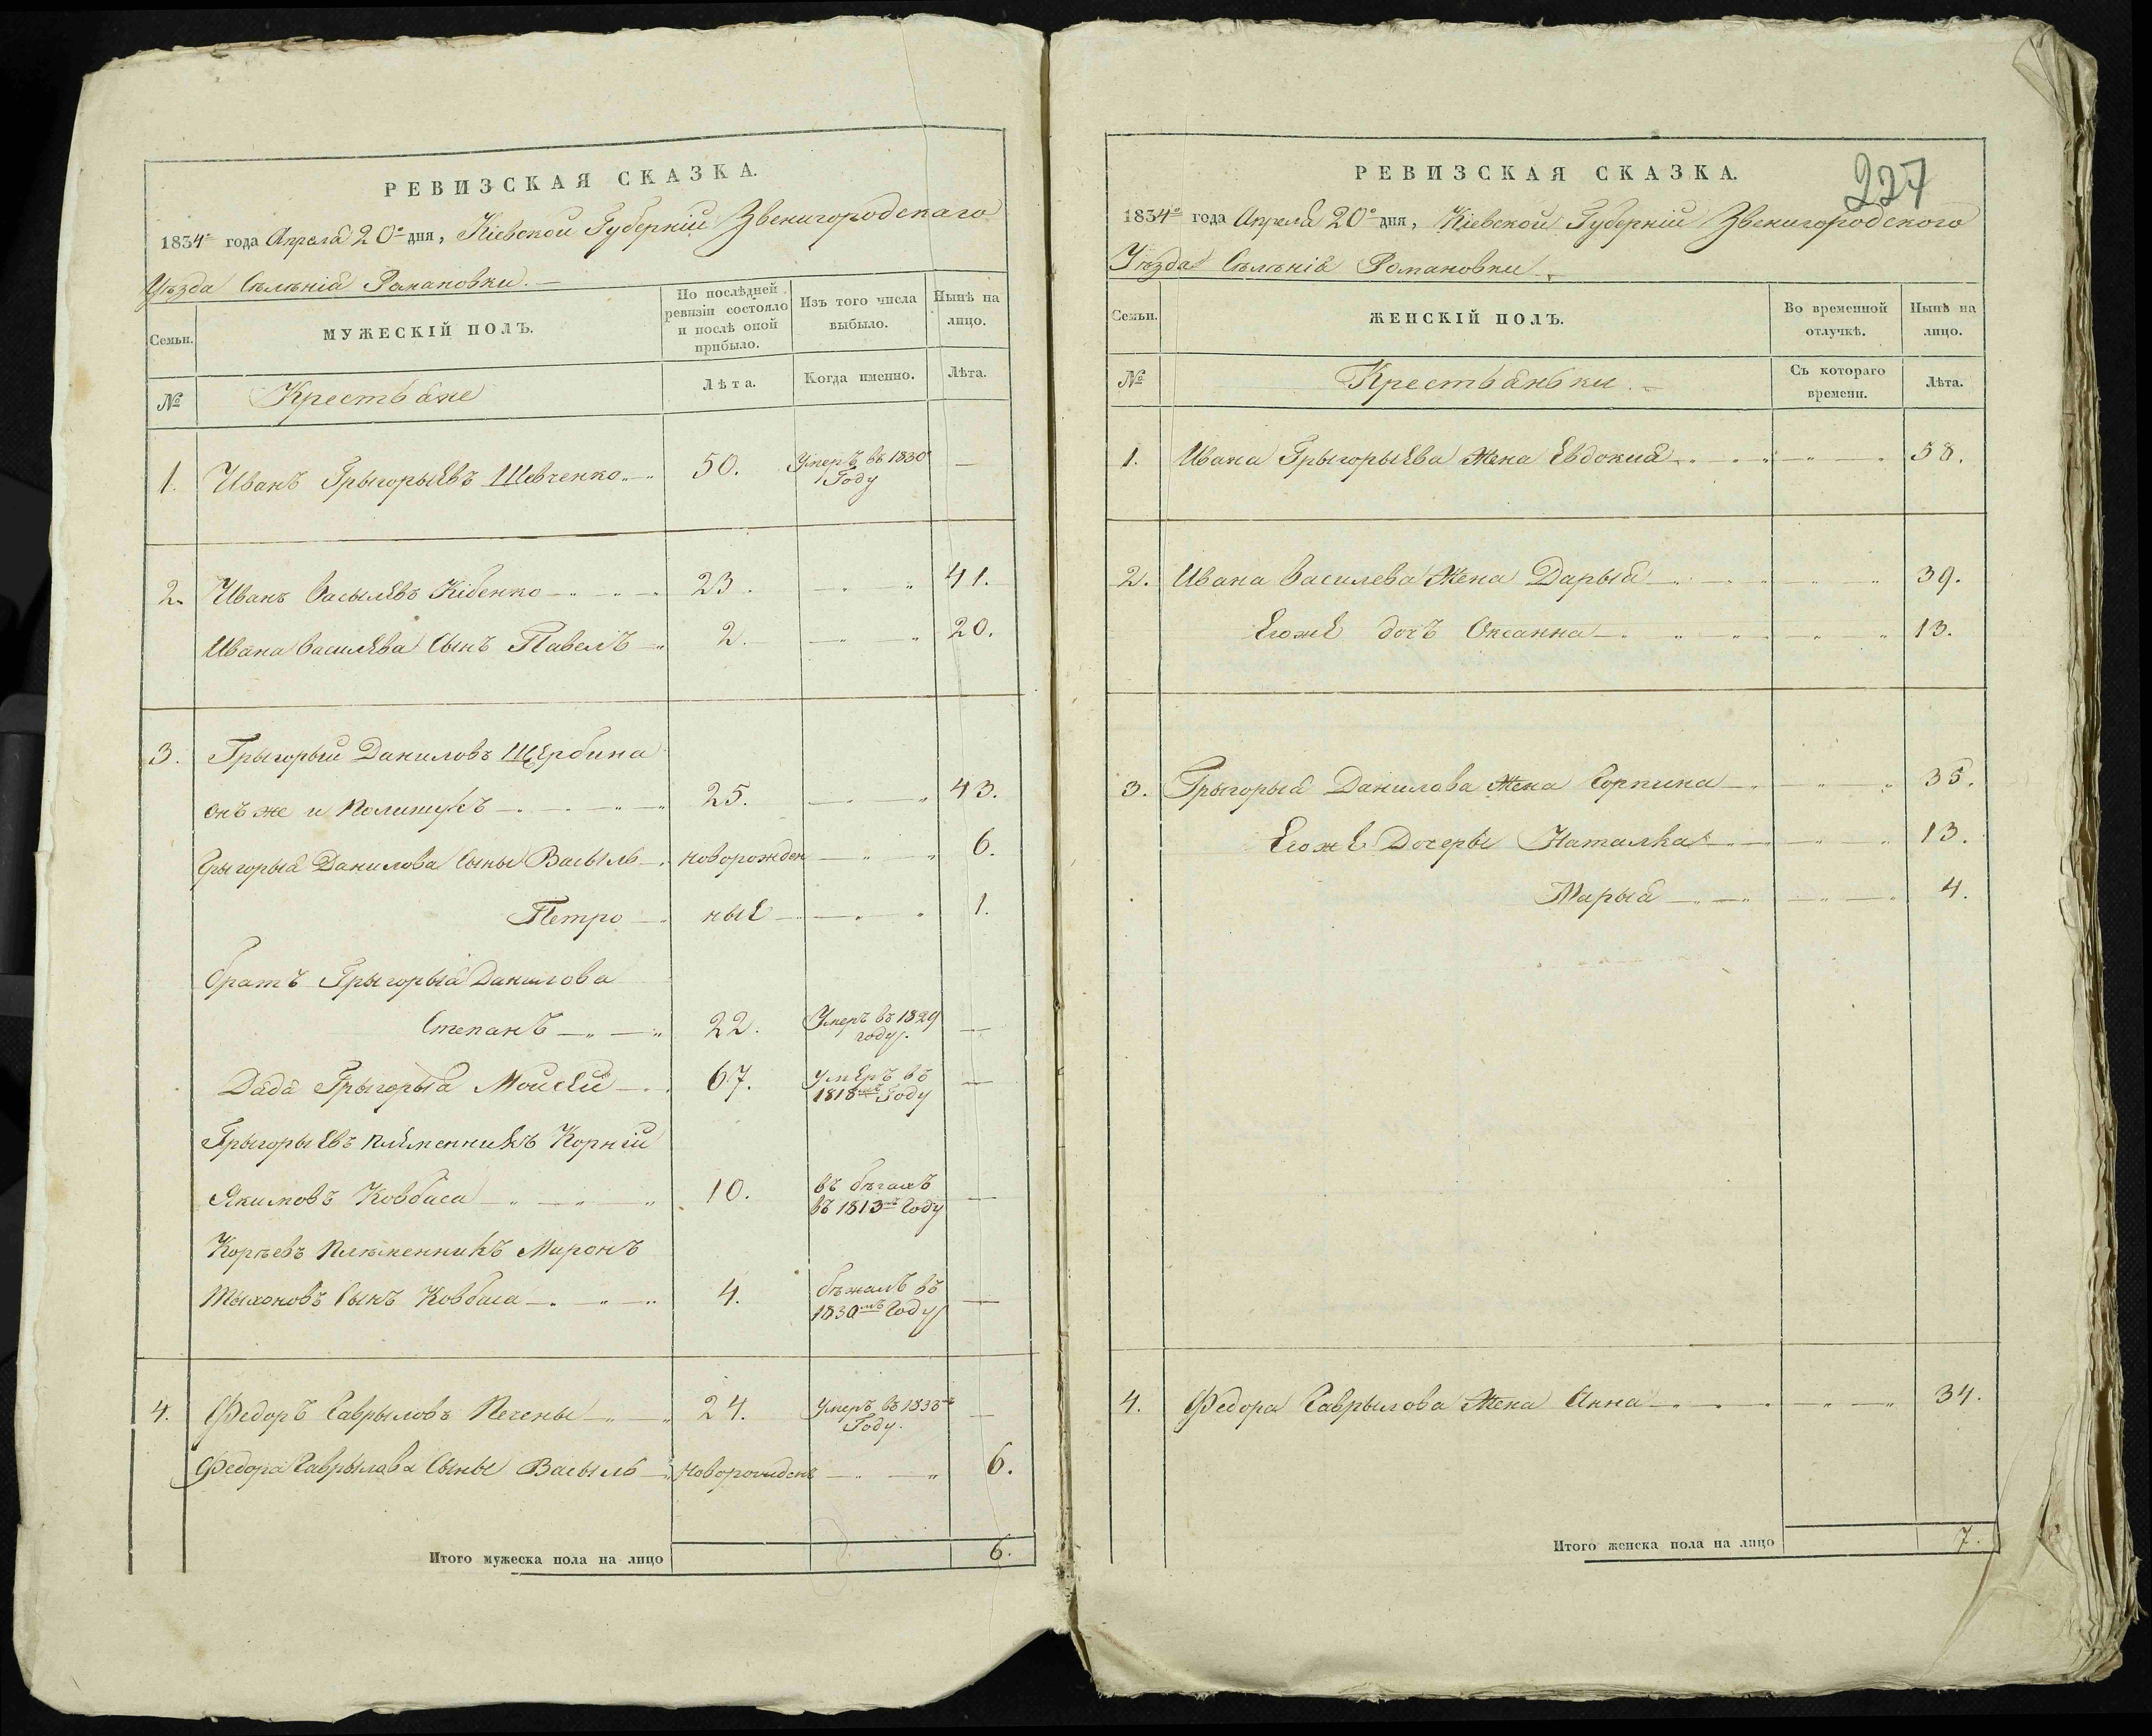 РЕВИЗСКАЯ СКАЗКА.
1834го года Апреля 20го дня, Кіевской Губерніи Звенигородскаго
Уѣзда Сѣлѣнія Романовки.
Семьи. МУЖЕСКІЙ ПОЛЪ. По послѣдней ревизіи состояло и послѣ оной прибыло. Изъ того числа выбыло. Нынѣ на лицо.
№ Крестьяне Лѣта. Когда именно. Лѣта.
1. Иванъ Грыгорыевъ Шевченко 50. Умеръ въ 1830 Году —
2. Иванъ Васылевъ Кібенко 23. 41.
Ивана Василева Сынъ Павелъ 2. 20.
3. Грыгорый Даниловъ Щербина
онъ же и 25. 43.
Грыгорыя Данилова Сыны Васыль новорожден 6.
Петро ные 1.
братъ Грыгорыя Данилова
Степанъ 22. Умеръ въ 1829 году. —
Дядя Грыгорыя Моисей 67. умеръ въ 1818мъ Году —
Грыгорыевъ племенникъ Корній
Якимовъ Ковбаса 10. въ бѣгахъ въ 1813мъ Году —
Корѣевъ Плѣменникъ Миронъ
Тыхоновъ Сынъ Ковбаса 4. бѣжалъ въ 1830мъ Году —
4. Федоръ Гаврыловъ Печены 24. Умеръ въ 1833 Году. —
Федора Гаврылова Сыны Васыль Новорожденъ 6.
Итого мужеска пола на лицо 6.
227
РЕВИЗСКАЯ СКАЗКА.
1834го года Апреля 20го дня, Кіевской Губерніи Звенигородского
Уѣзда Сѣлѣнія Романовки
Семьи. ЖЕНСКІЙ ПОЛЪ. Во временной отлучкѣ. Нынѣ на лицо.
№ Крестьяньки. Съ котораго времени. Лѣта.
1. Ивана Грыгорыева Жена Евдокия 58.
2. Ивана Василева Жена Дарыя 39.
Егоже дочъ Оксанна 13.
3. Грыгорыя Данилова Жена Горпина 35.
Егоже Дочеры Наталка 13.
Марыя 4.
4. Федора Гаврылова Жена Анна 34.
Итого женска пола на лицо 7.